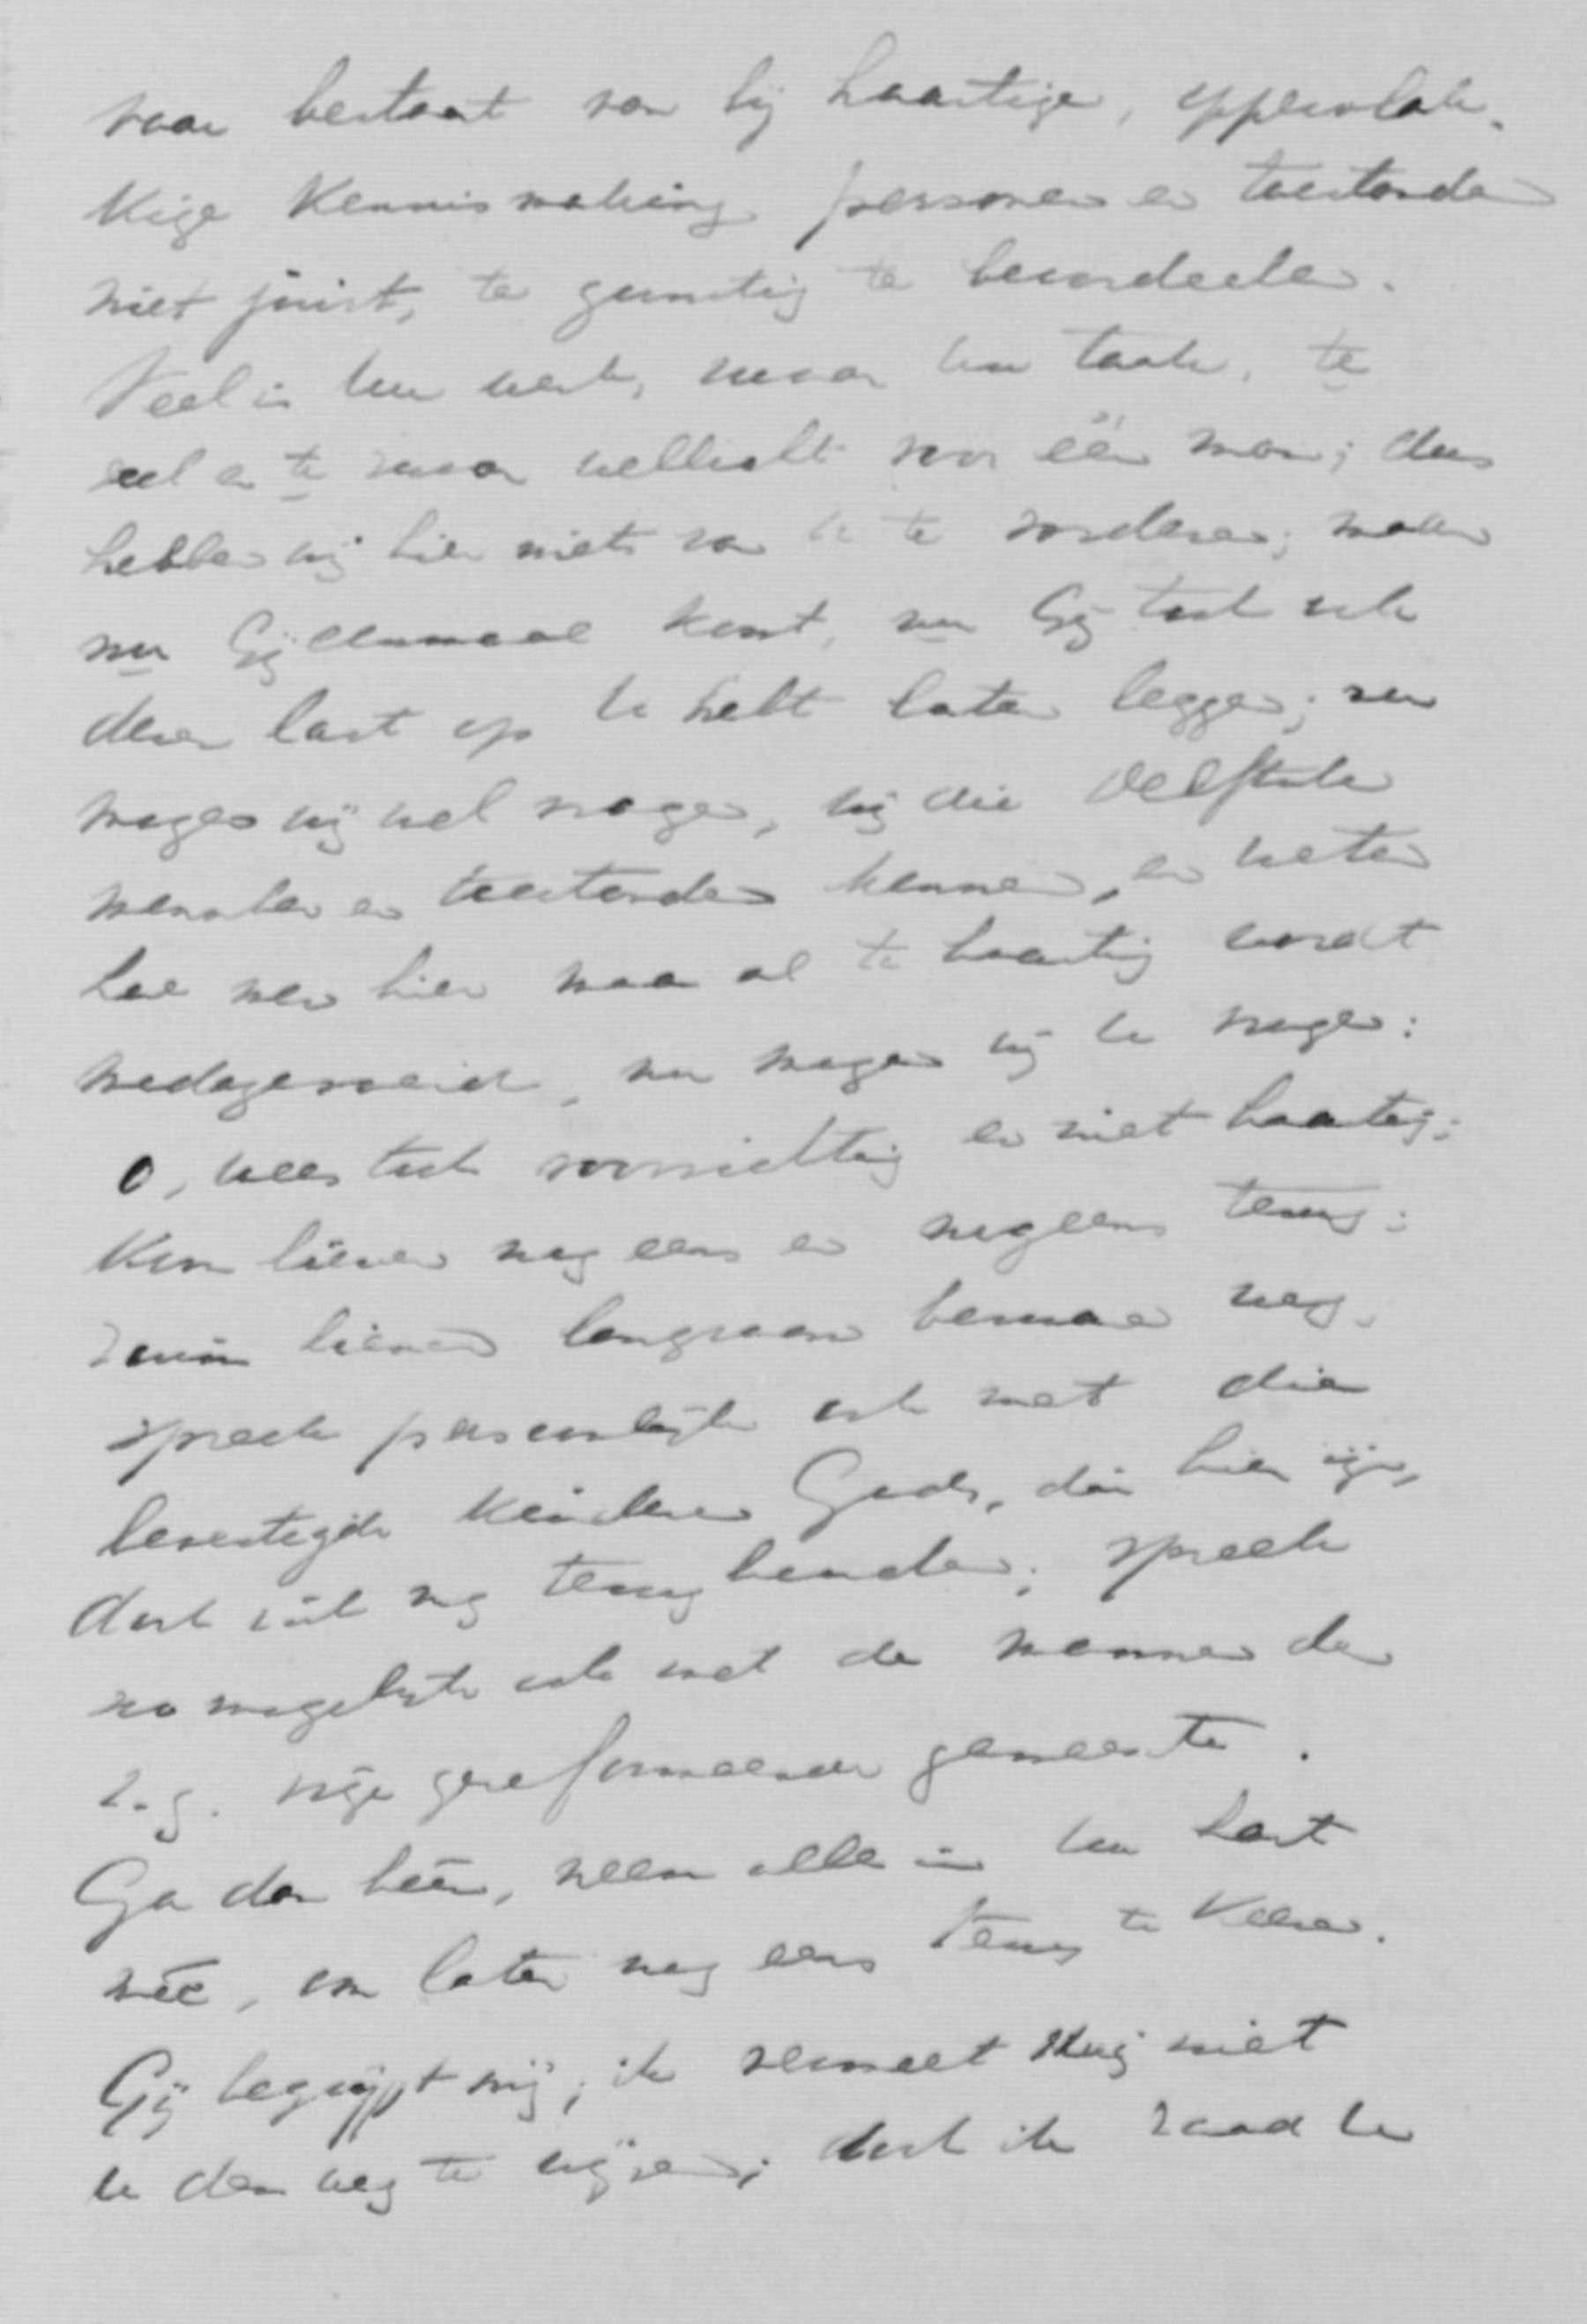 vaar bestaat van bij haastige, oppervlak-
kige kennismaking personen en toestanden
niet juist, te gunstig te beoordeelen.
Veel is Uw werk, zwaar Uw taak, te
veel en te zwaar wellicht voor één man; dus
hebben wij hier niets van U te vorderen; maar
nu Gij eenmaal komt, nu Gij toch ook
dezen last op U hebt laten leggen; nu
mogen wij wel vragen, wij die Delftsche
menschen en toestanden kennen, en weten
hoe men hier maar al te haastig wordt
medegevoerd, nu mogen wij U vragen:
o, wees toch voorzichtig en niet haastig;
Kom liever nog eens en nogeens terug;
win liever langzaam bezwaren weg.
spreek persoonlijk ook met die
bevestigde kinderen Gods, die hier zijn,
doch zich nog terughouden; spreek
zoo mogelijk ook met de mannen der
z.g. vrije gereformeerde gemeente.
Ga dan héén, neem allen in Uw hart
méé, om later nog eens terug te keeren.
Gij begrijpt mij; ik vermeet mij niet
U den weg te wijzen; doch ik raad U